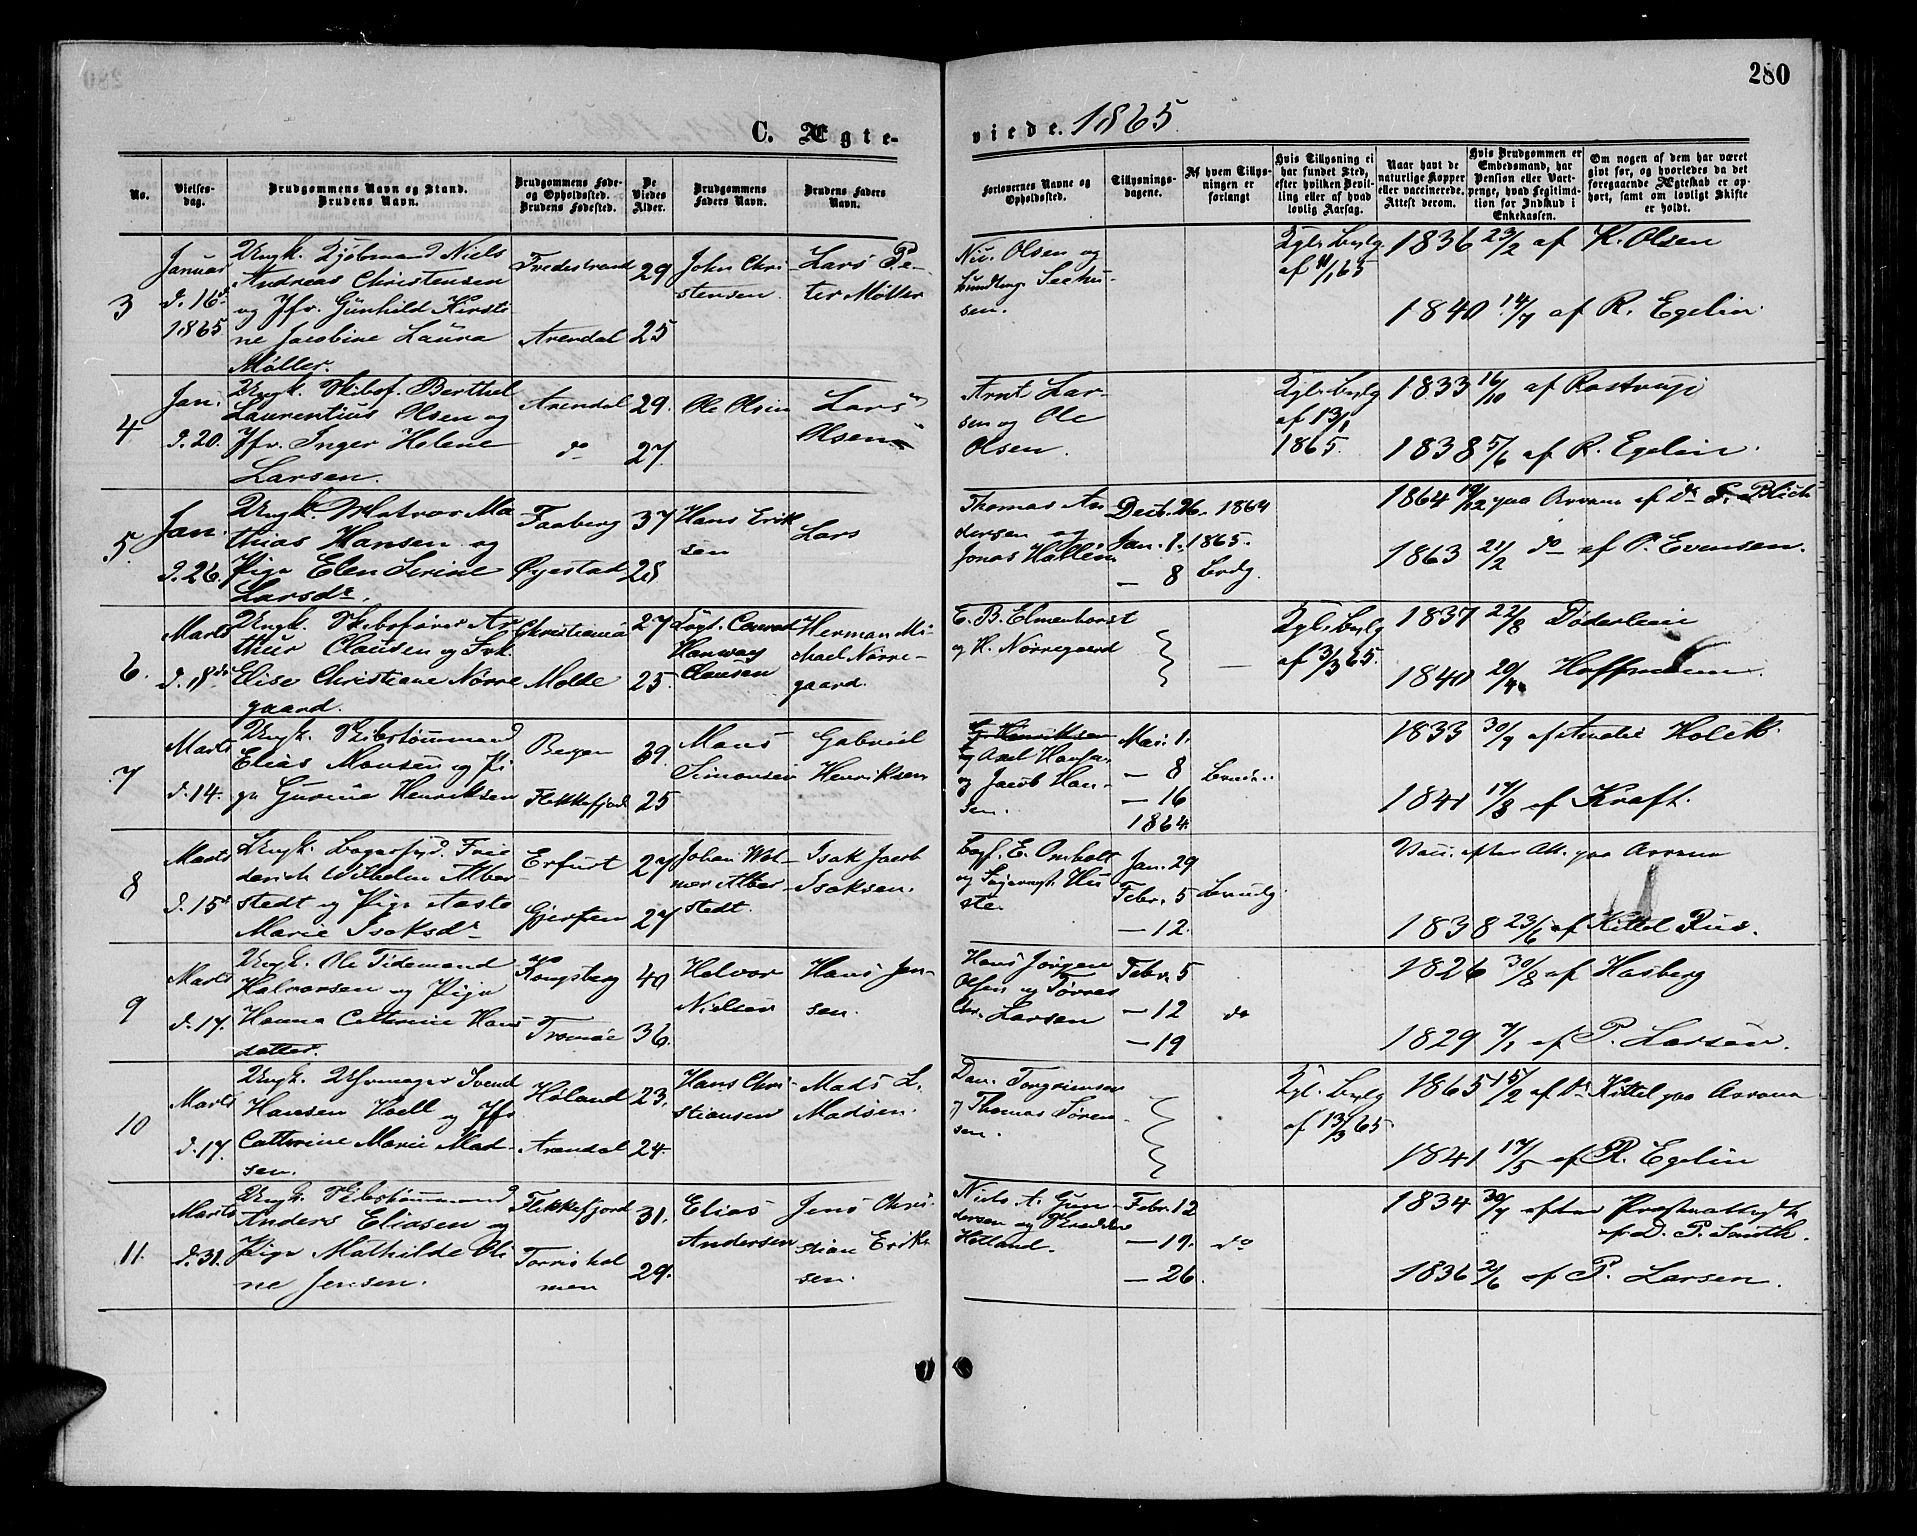 280
C. Ægte-
viede. 1865.
No.
Vielses-
dag.
Brudgommens Navn og Stand.
Brudens Navn.
Brudgommens Føde-
og Opholdssted.
Brudens Fødested.
De
Viedes
Alder.
Brudgommens
Faders Navn.
Brudens Faders
Navn.
Forlovernes Navne og
Opholdssted.
Tillysnings-
dagene.
Af hvem Tillys-
ningen er
forlangt
Hvis Tillysning ei
har fundet Sted,
efter hvilken Bevil-
ling eller af hvad
lovlig Aarsag.
Naar havt de
naturlige Kopper
eller vaccinerede.
Attest derom.
Hvis Brudgommen er
Embedsmand, har
Pension eller Vart-
penge, hvad Legitima-
tion for Indskud i
Enkekassen.
Om nogen af dem har været
givt før, og hvorledes da det
foregaaende Ægteskab er op-
hørt, samt om lovligt Skifte
er holdt.
3
Januar
d. 16de
1865
Ungk. Kjøbmand Niels
Andreas Christensen
og Jfr. Gunhild Kirsti
ne Jacobine Laura
Møller.
Tvedestrand
Arendal
29
25
John Chri
stensen.
Lars Pe-
ter Møller
Olsen og
sen.
Kgl. Bevlg
af 11/1 65
1836 23/2 af K. Olsen
1840 14/7 af R. Egelin.
4
Jan.
d. 20.
Ungk. Skibsf. Berthel
Laurentius Olsen og
Jfr. Inger Helene
Larsen.
Arendal
do
29.
27.
Ole Olsen
Lars
Olsen
Arnt Lar-
sen og Ole
Olsen.
Kgl. Bevlg
af 13/1
1865.
1833 16/10 af Rostrup
1838 5/6 af R. Egelin.
5.
Jan.
d. 26.
Ungk. Matros Ma
thias Hansen og
Pige Elen Serine
Larsdr.
Faaberg
Øyestad
37
28
Hans Erik
sen
Lars
Thomas An
dersen og
Jonas Hallin
Decb. 26. 1864
Jan. 1. 1865.
— 8
Brdg.
1864 19/12 paa Arrons af Dr. Blich
1863 21/2 do af P. Evensen.
6.
Marts
d. 18de
Ungk. Skibsfører Ar
thur Clausen og Frk.
Elise Christiane Nørre
gaard.
Christiania
Molde
27
25.
Conrad
Hanway
Clausen
Herman Mi-
chael Nørre-
gaard.
E. B. Elmenhorst
og H. Nørregaard
—
Kgl. Bevlg
af 3/3 65.
1837 22/8 Døderlein
1840 20/4 Hoffmann.
7
Marts
d. 14.
Ungk. Skibstømmermand
Elias Monsen og Pi
ge Gurine Henriksen
Bergen
Flekkefjord
39.
25
Mons
Simonsen
Gabriel
Henriksen
G. Henriksen
Axel Hansen
og Jacob Han-
sen.
Mai. 1.
— 8
— 16
1864.
1833 30/9 af Amalie Holck.
1841 17/8 af Kraft.
8
Marts
d. 15de
Ungk. Bagersvd. Frie
derich Wilhelm Alber
stedt og Pige Aaste
Marie Isaksdr
Erfurt
Gjerstad
27
27
Johan Wol-
mer Alber
stedt.
Isak Jacob
Isaksen.
Bagf. E. Omholt
ste.
Jan. 29
Febr. 5
— 12.
Vacc. efter Att. paa Arrons
1838 23/6 af Kittel Rus.
9
Marts
d. 17.
Ungk. Ole Tidemand
Halvorsen og Pige
Hanna Cathrine Hans
datter.
Kongsberg
Tromøe
40
36.
Halvor
Nielsen
Hans Jen-
sen.
Hans Jørgen
Olsen og Tørres
Chr. Larsen
Febr. 5
— 12
— 19
do
1826 30/8 af Hasberg
1829 7/1 af P. Larsen.
10
Marts
d. 17.
Ungk. Uhrmager Svend
Hansen Hoell og Jfr
Cathrine Marie Mad-
sen.
Høland
Arendal
23.
24.
Hans Chri-
stiansen
Mads L.
Madsen.
Dan. Torgrimsen
og Thomas Søren
sen.
Kgl. Bevlg
af 13/3 65
1865 15/2 af Dr Kittel paa Arrons
1841 17/5 af R. Egelin
11.
Marts
d. 31.
Ungk. Skibstømmermand
Anders Eliasen og
Pige Mathilde Oli
ne Jensen.
Flekkefjord
Torrishol
men
31.
29.
Elias
Andersen
Jens Chri-
stian Erik-
sen.
Niels A. Gun
dersen og
Holland.
Febr. 12
— 19.
— 26.
do
1834 30/7 efter Præsteattest
af D. P. Smith.
1836 2/6 af P. Larsen.